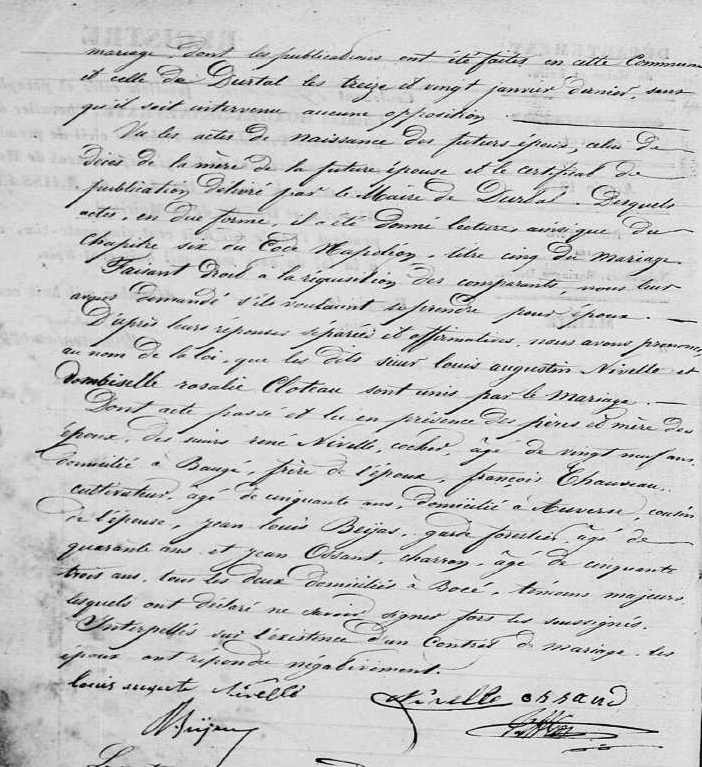 mariage dont les publications ont été faites en cette Commune
et celle de Durtal les treize et vingt janvier dernier, sans
qu'il soit intervenu aucune opposition.
Vu les actes de naissance des futurs époux, celui de
décès de la mère de la future épouse et le certificat de
publication délivré par le Maire de Durtal. Desquels
actes, en due forme, il a été donné lecture, ainsi que du
Chapitre six du Code Napoléon, titre cinq du mariage.
Faisant Droit à la réquisition des comparants, nous leur
avons demandé s'ils voulaient se prendre pour époux.
D'après leurs réponses séparées et affirmatives, nous avons prononcé
au nom de la loi, que les dits sieur louis augustin Nivelle et
Demoiselle rosalie Cloteau sont unis par le mariage.
Dont acte passé et lu en présence des pères et mère des
époux, des sieurs rené Nivelle, cocher, âgé de vingt neuf ans,
domicilié à Baugé, frère de l'époux, françois Chauveau,
cultivateur, agé de cinquante ans, domicilié à Auverse, cousin
de l'épouse, jean louis garde forestier, âgé de
quarante ans et jean charron, âgé de cinquante
trois ans, tous les deux domiciliés à Bocé, témoins majeurs,
lesquels ont déclaré ne savoir signer fors les soussignés.
Interpellés sur l'existence d'un Contrat de mariage, les
époux ont répondu négativement.
louis Nivelle
Nivelle